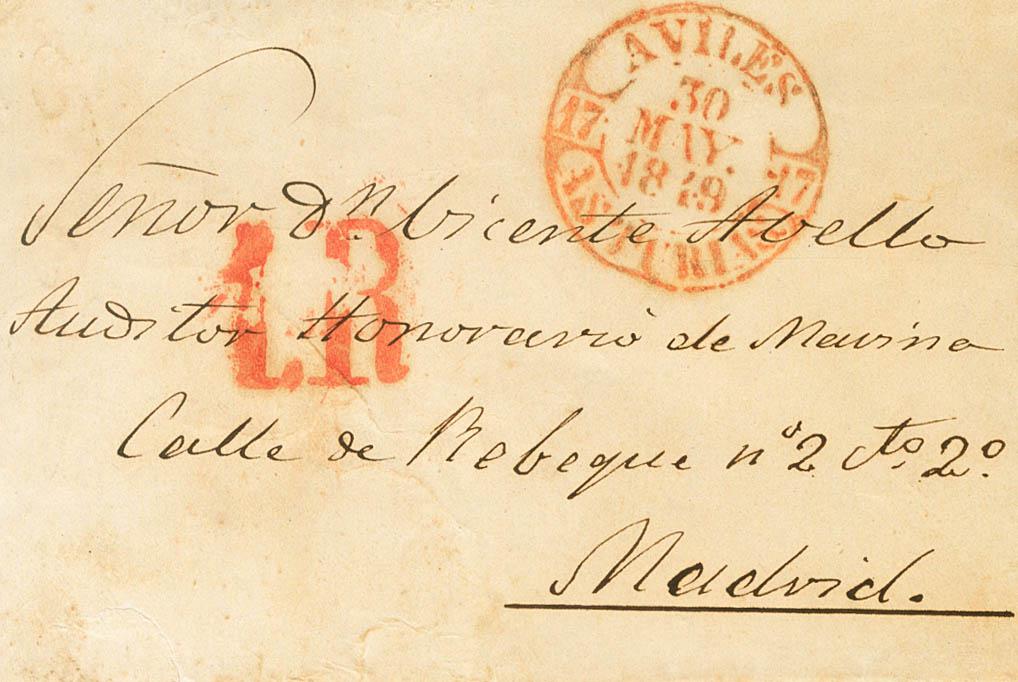 AVILES
30
MAY.
1849
17 17
ASTURIAS
1R
Señor Dn. Vicente Abello
Auditor Honorario de Marina
Calle de Rebeque nº 2 Cto. 2º
Madrid.